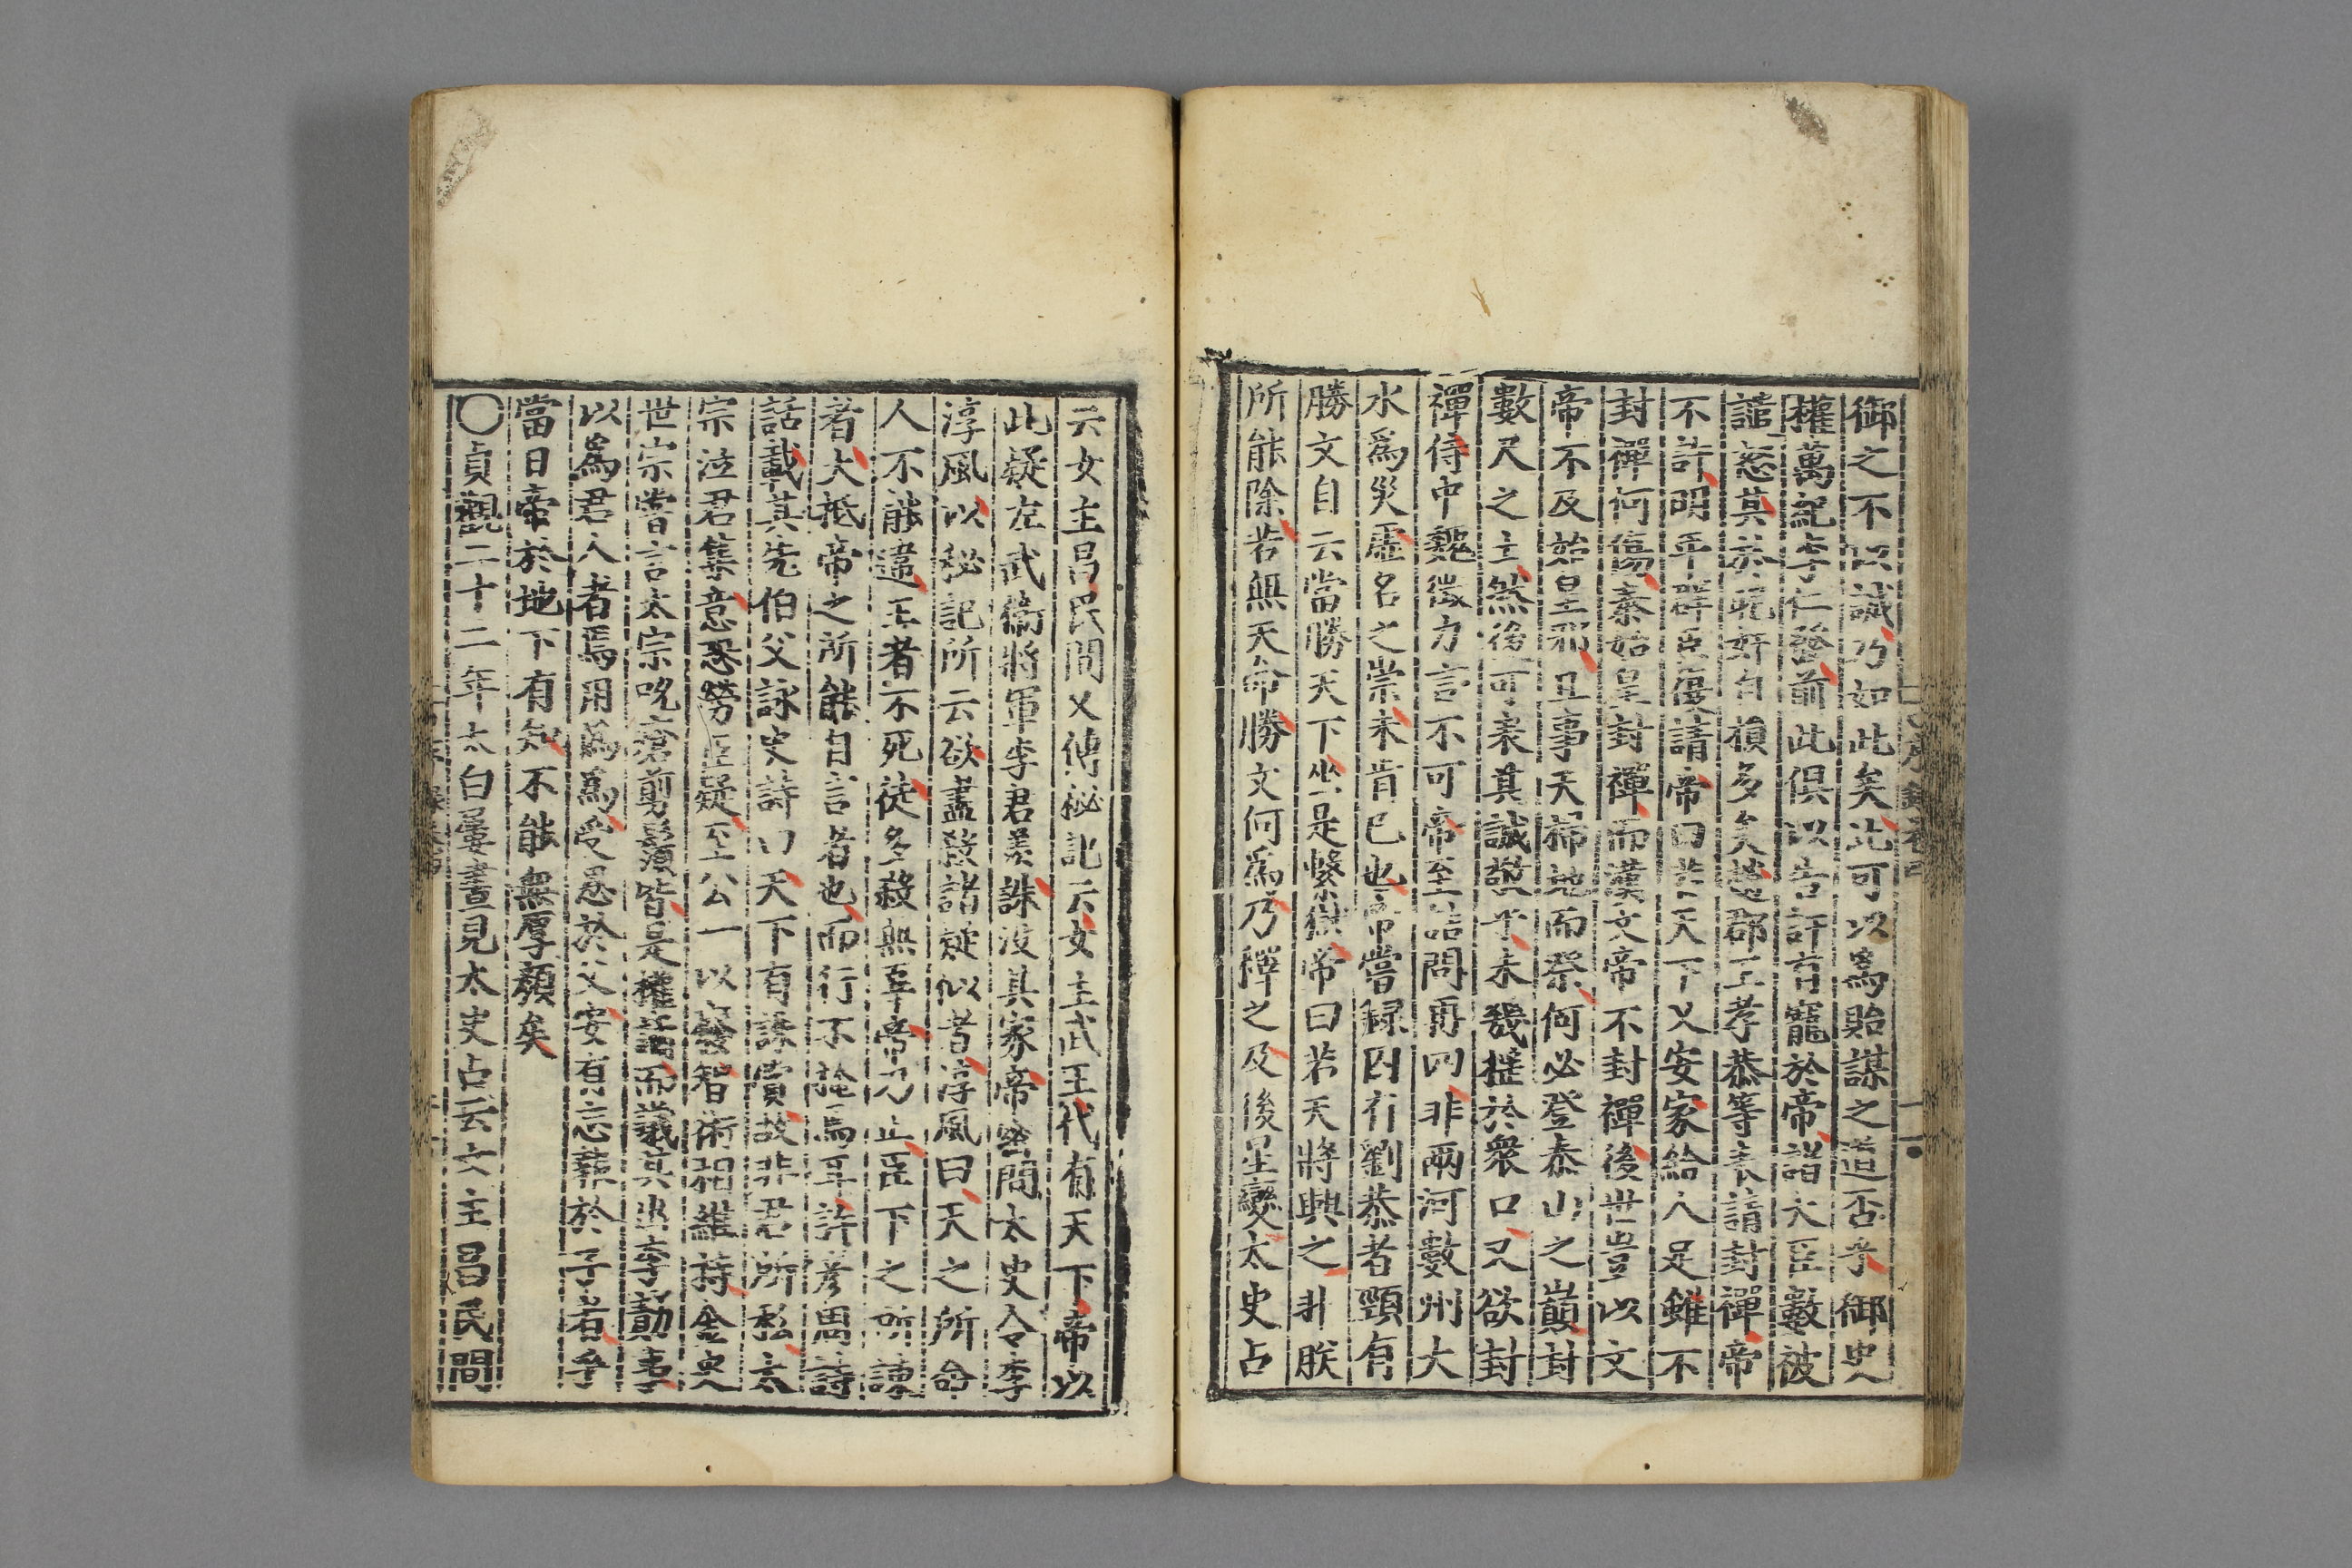 御之不以誠乃如此矣此可以爲貽謀之道否乎御史
權萬紀李仁發前此俱以告訐有寵於帝諸大臣數被
譴怒其於玩好自損多矣趙郡王孝恭等表請封禪帝
不許明年群臣復請帝曰若天下乂安家給人足雖不
封禪何傷秦始皇封禪而漢文帝不封禪後世豈以文
帝不及始皇邪且事天掃地而祭何必登泰山之巓封
數尺之土然後可表其誠敬乎未幾撓於衆口又欲封
禪侍中魏徵力言不可帝至詰問再四非兩河數州大
水爲災虛名之崇未肯已也帝嘗録囚有劉恭者頸有
勝文自云當勝天下坐是繫獄帝曰若天將興之非朕
所能除若無天命勝文何爲乃釋之及後星變太史占
云女主昌民間又傳秘記云女主武王代有天下帝以
此疑左武衛將軍李君羡誅沒其家帝密問太史令李
淳風以秘記所云欲盡殺諸疑似者淳風曰天之所命
人不能違王者不死徒多殺無辜帝乃止臣下之所諫
者大抵帝之所能自言者也而行不掩焉耳許彦周詩
話載其先伯父詠史詩曰天下有謀賞故非君所私太
宗泣君集意恐勞臣疑至公一以廢智術相維持金史
世宗嘗言太宗吮瘡剪鬚皆是權謀而譏其出李勣事
以爲君人者焉用爲爲受恩於父安有忘葬於子者乎
當日帝於地下有知不能無厚顔矣
〇貞觀二十二年太白晝見太史占云女主昌民間